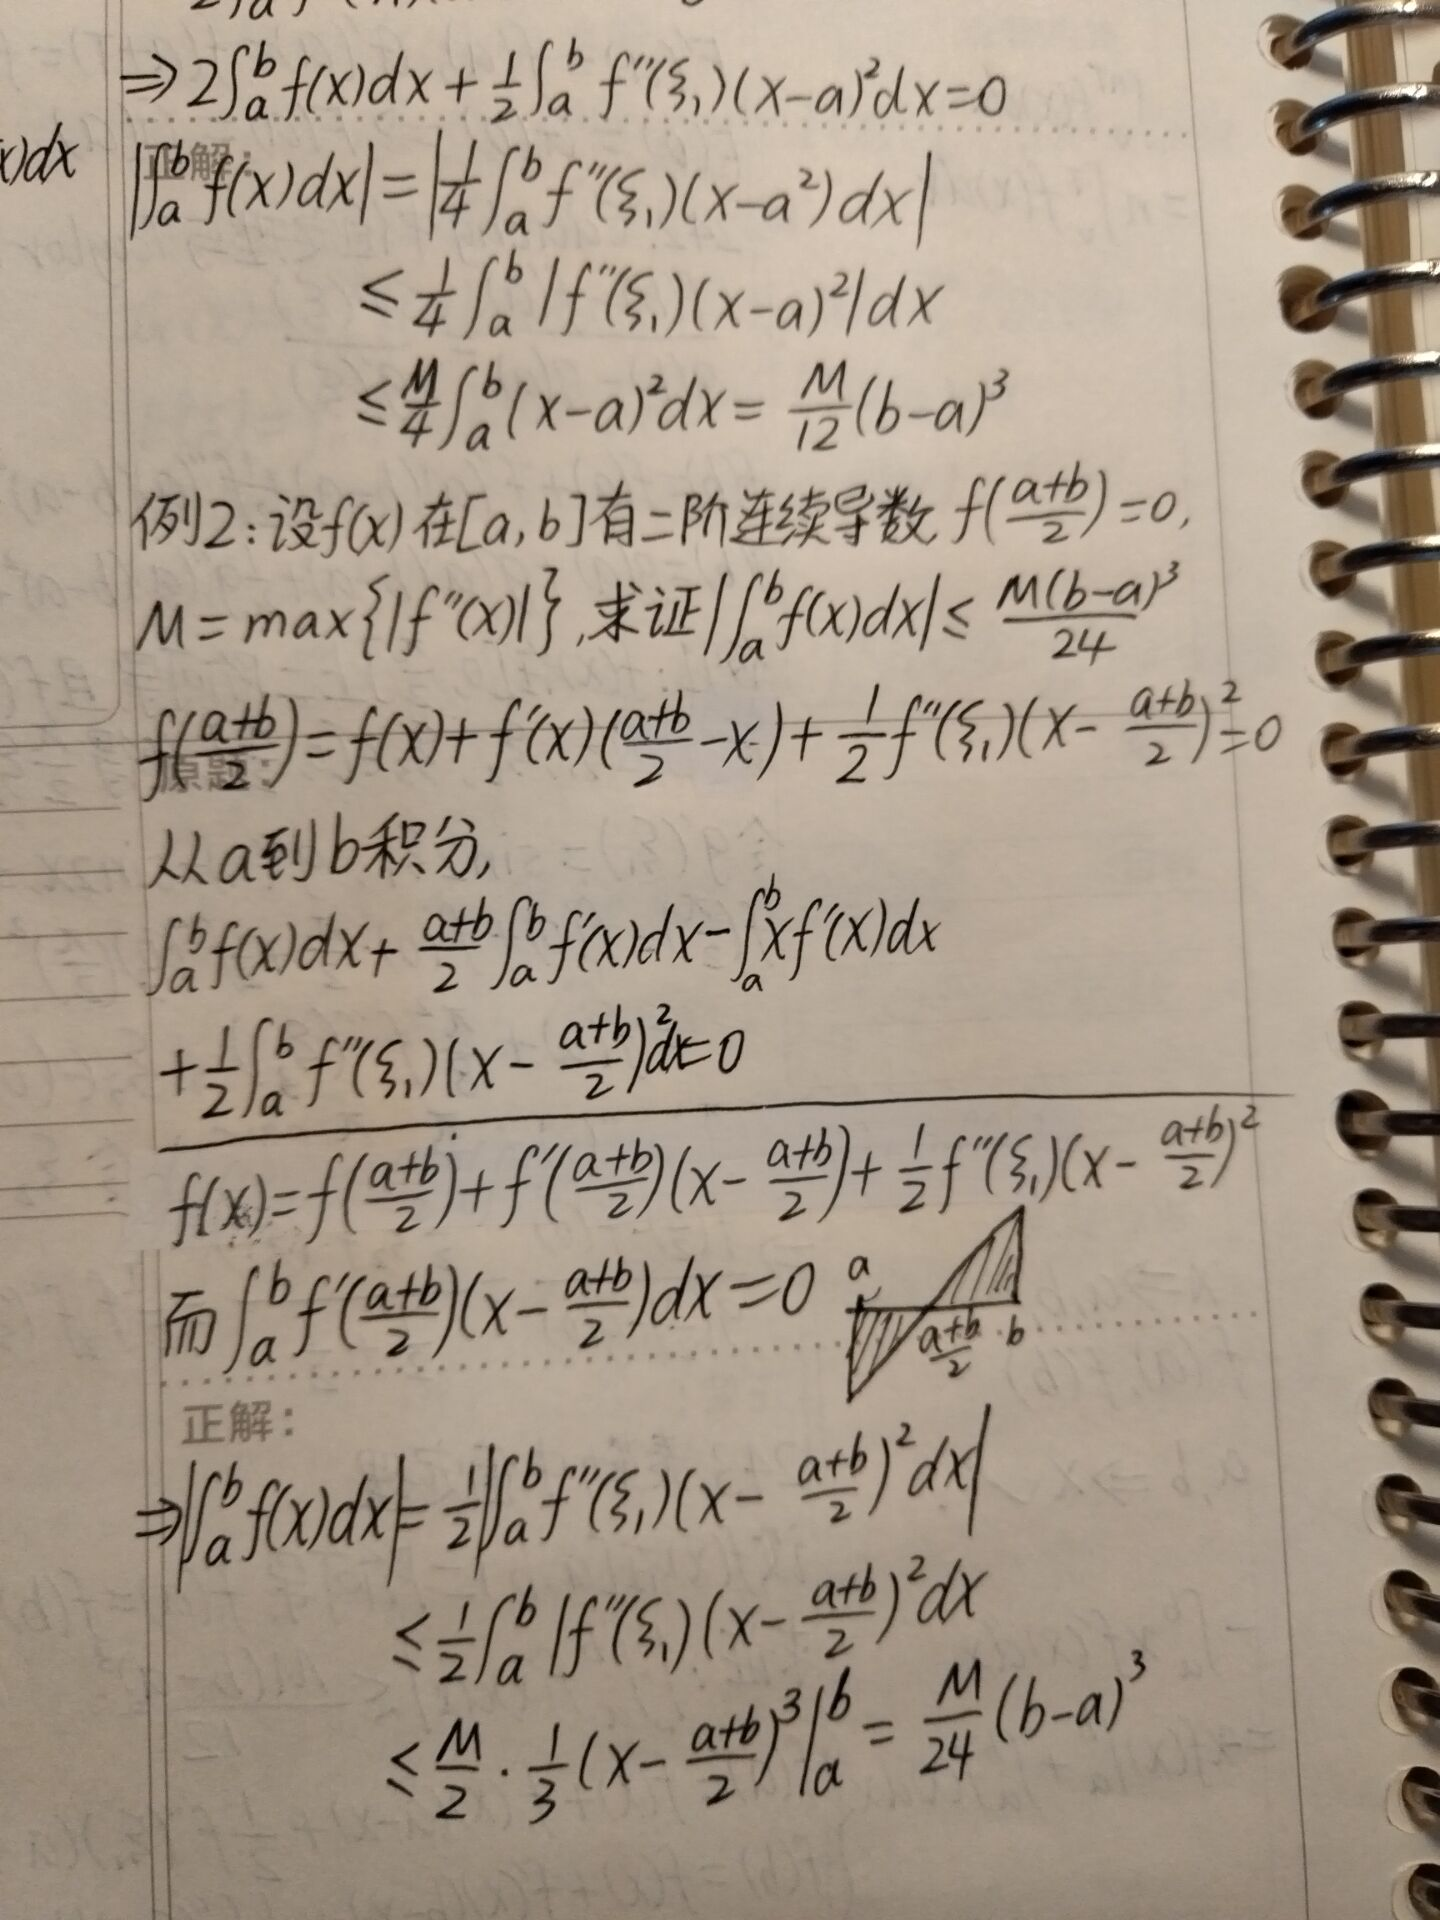 ⇒2∫_a^b f(x)dx+½∫_a^b f''(ξ₁)(x-a)²dx=0
x)dx
正解:
|∫_a^b f(x)dx|=|¼∫_a^b f''(ξ₁)(x-a²)dx|
≤¼∫_a^b |f''(ξ₁)(x-a)²|dx
≤M/4∫_a^b (x-a)²dx=M/12(b-a)³
例2:设f(x)在[a,b]有二阶连续导数 f((a+b)/2)=0,
M=max{|f''(x)|},求证|∫_a^b f(x)dx|≤M(b-a)³/24
f((a+b)/2)=f(x)+f'(x)((a+b)/2-x)+½f''(ξ₁)(x-(a+b)/2)²=0
原题:
从a到b积分,
∫_a^b f(x)dx+(a+b)/2∫_a^b f'(x)dx-∫_a^b xf'(x)dx
+½∫_a^b f''(ξ₁)(x-(a+b)/2)²dx=0
f(x)=f((a+b)/2)+f'((a+b)/2)(x-(a+b)/2)+½f''(ξ₁)(x-(a+b)/2)²
而∫_a^b f'((a+b)/2)(x-(a+b)/2)dx=0
a (a+b)/2 b
正解:
⇒|∫_a^b f(x)dx|=½|∫_a^b f''(ξ₁)(x-(a+b)/2)²dx|
≤½∫_a^b |f''(ξ₁)(x-(a+b)/2)²dx
≤M/2·⅓(x-(a+b)/2)³|_a^b=M/24(b-a)³